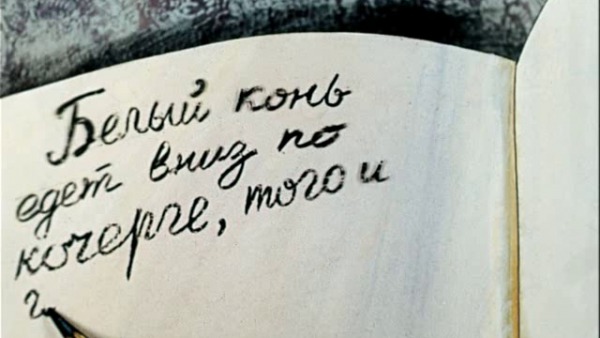 Белый конь
едет вниз по
кочерге, того и
г